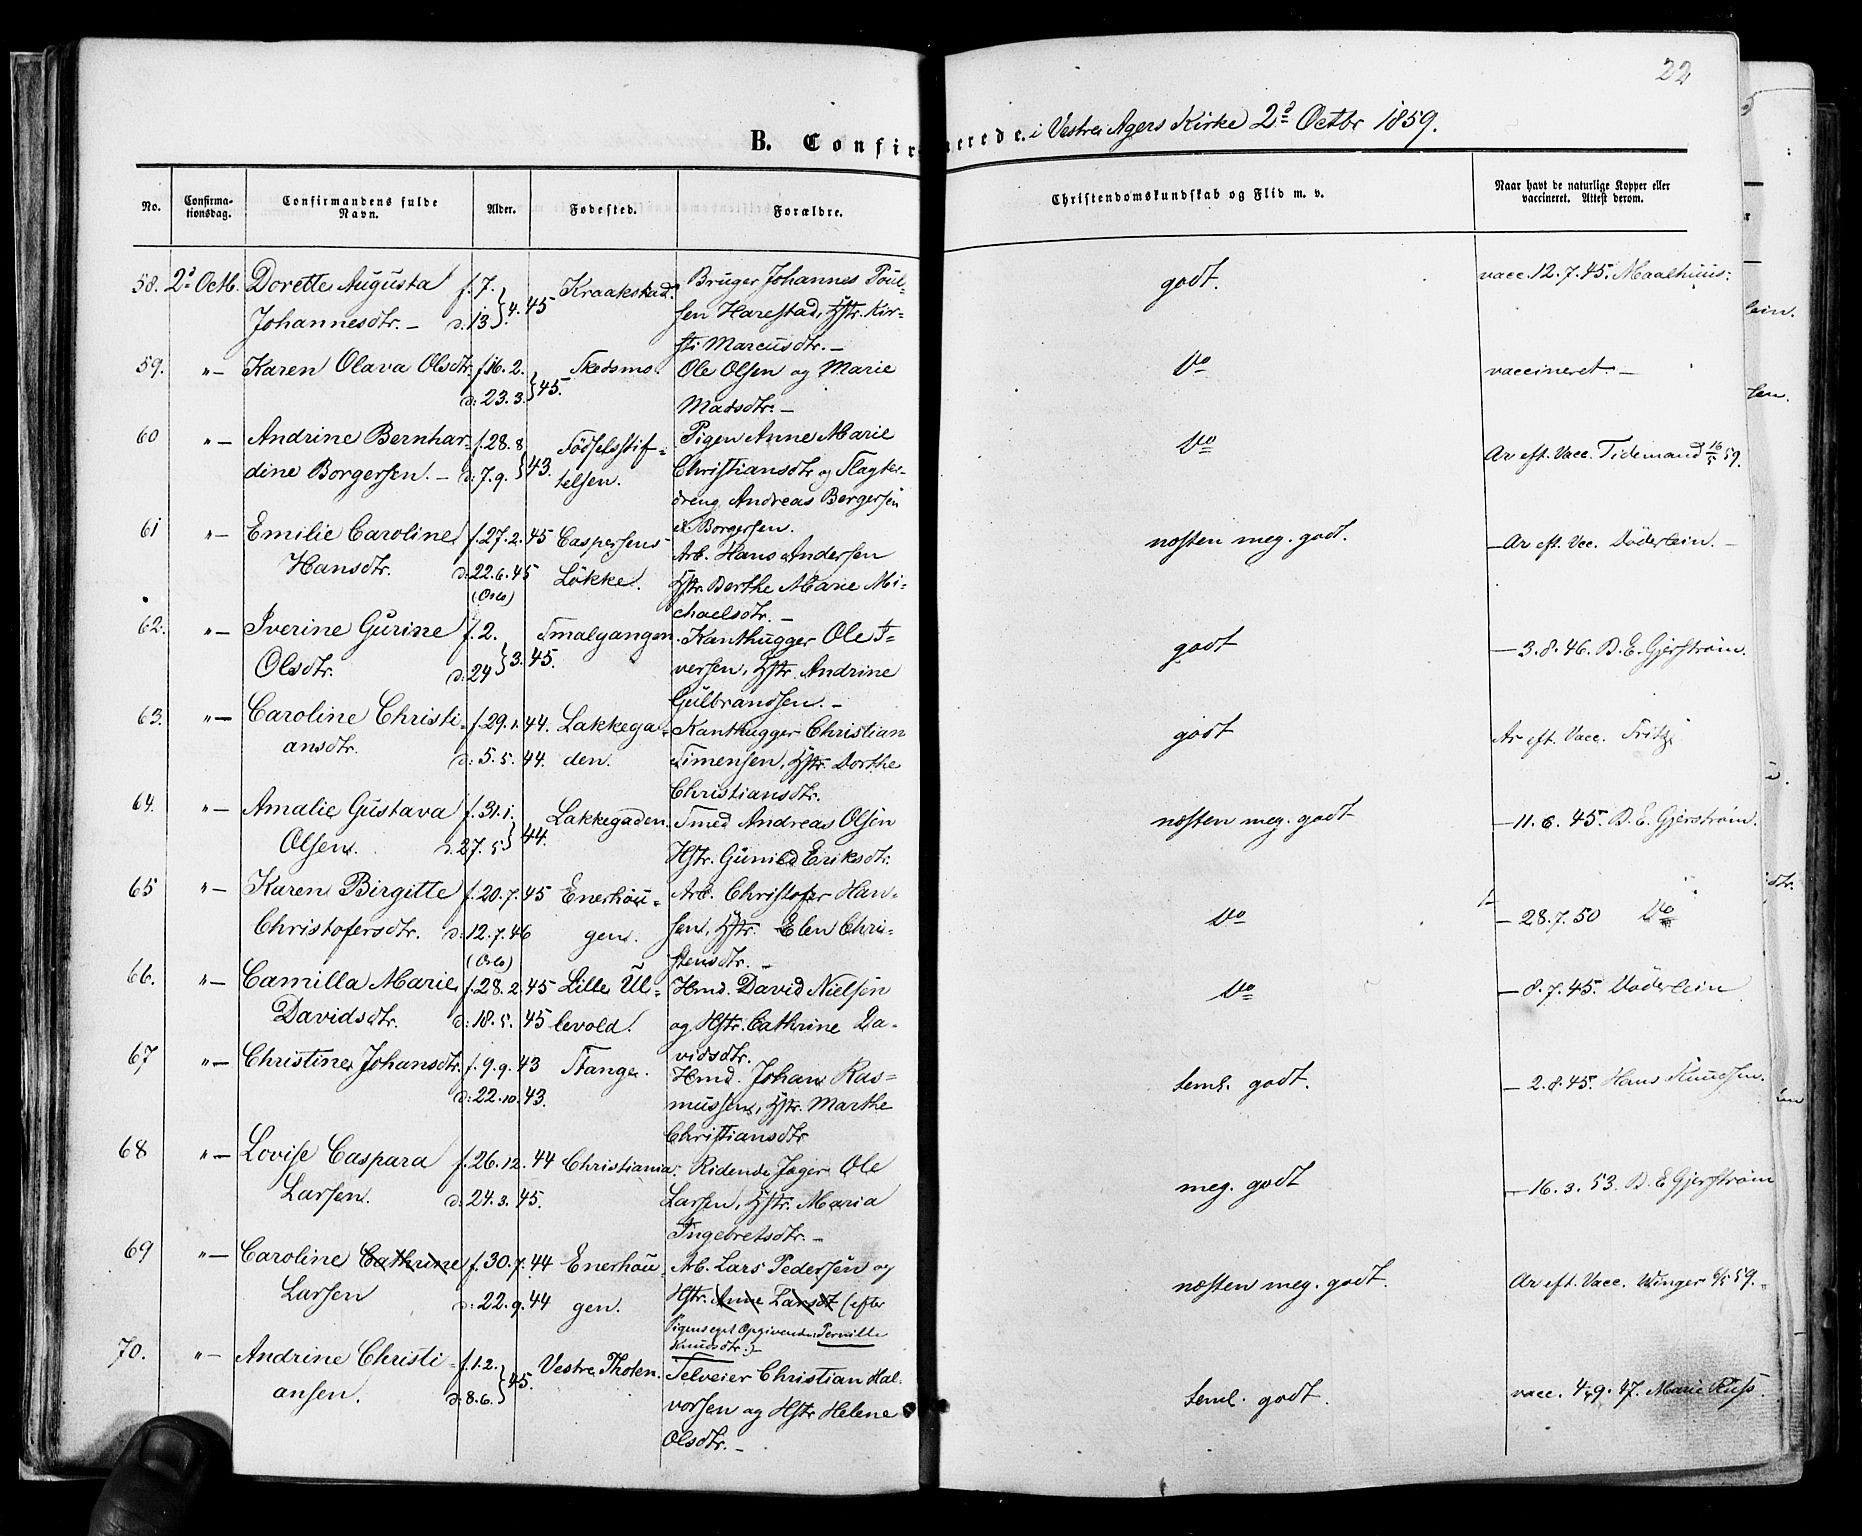 22
B. Confirmerede. i Vestre Agers Kirke 2d Octbr 1859.
No.
Confirma-
tionsdag.
Confirmandens fulde
Navn.
Alder.
Fødested.
Forældre.
Christendomskundskab og Flid m. v.
Naar havt de naturlige Kopper eller
vaccineret. Attest derom.
58. 2d Octb. Dorette Augusta f. 7. Kraakstad. Bruger Johannes Poul- godt. vacc. 12.7.45. Maalhuus:
Johannesdtr. — d. 13 } 4. 45 sen Harestad, Hstr. Kir-
sti Marcusdtr. —
59. "— Karen Olava Olsdtr. f. 16. 2. Skedsmo. Ole Olsen og Marie Do vaccineret. —
d: 23. 3. } 45. Madsdtr. —
60 "— Andrine Bernhar- f. 28. 8 Fødselsstif- Pigen Anne Marie Do Ar eft. Vacc. Tidemand 16/5 59.
dine Borgersen. — d: 7. 9. } 43. telsen. Christiansdtr og Slagter-
dreng Andreas Bergersen
el. Borgersen.
61 "— Emilie Caroline f. 27. 2. 45 Caspersens Arb. Hans Andersen næsten meg. godt. — Ar eft. Vcc. Døderlein. —
Hansdtr. d: 22. 6. 45 Løkke. Hstr. Berthe Marie Mi-
(Oslo) chaelsdtr. —
62. "— Iverine Gurine f. 2. Smalgangen. Kanthugger Ole I- godt — 3. 8. 46. D. E. Gjerstrøm.
Olsdtr. d: 24 } 3. 45. versen, Hstr. Andrine
Gulbrandsen. —
63. "— Caroline Christi- f. 29. 1. 44. Lakkega- Kanthugger Christian godt Ar eft. Vacc. Fritz
ansdtr. d: 5. 5. 44. den. Simensen, Hstr Dorthe
Christiansdtr.
64. "— Amalie Gustava f. 31. 1. Lakkegaden. Smed Andreas Olsen næsten meg. godt — 11. 6. 45. D. E. Gjerstrøm.
Olsen. d. 27. 5 } 44. Hstr. Gunild Eriksdtr.
65 "— Karen Birgitte f. 20. 7. 45 Enerhau- Arb. Christofer Han- Do — 28. 7. 50 Do
Christofersdtr. d: 12. 7. 46 gen. sen, Hstr. Elen Chri-
(Oslo) stensdtr. —
66. "— Camilla Marie f. 28. 2. 45 Lille Ul- Hmd. David Nielsen Do — 8. 7. 45. Døderlein
Davidsdtr. d: 18. 5. 45 levold. og Hstr. Cathrine Da-
vidsdtr.
67 "— Christine Johansdtr. f. 9. 9. 43 Stange. Hmd. Johan Ras- teml. godt. — 2. 8. 45. Hans Knudsen.
d: 22. 10. 43. mussen, Hstr. Marthe
Christiansdtr
68 "— Lovise Caspara f. 26. 12. 44 Christiania. Ridende Jæger Ole meg. godt — 16. 3. 53. D. E Gjerstrøm
Larsen. d: 24. 3. 45. Larsen, Hstr. Maria
Ingebretsdtr. —
69 "— Caroline Cathrine f. 30. 7. 44 Enerhau- Arb. Lars Pedersen og næsten meg. godt. Ar eft. Vacc. Winger 6/5 59.
Larsen d: 22. 9. 44 gen. Hstr. Anne Larsdt (efter
Pigens eget Opgivende Pernille
Knudsdtr.)
70. "— Andrine Christi- f. 1. 2. Vestre Thoten. Selveier Christian Hal- teml. godt. vacc. 4. 9. 47. Marie Russ.
ansen. d: 8. 6. } 45. vorsen og Hstr Helene
Olsdtr. —